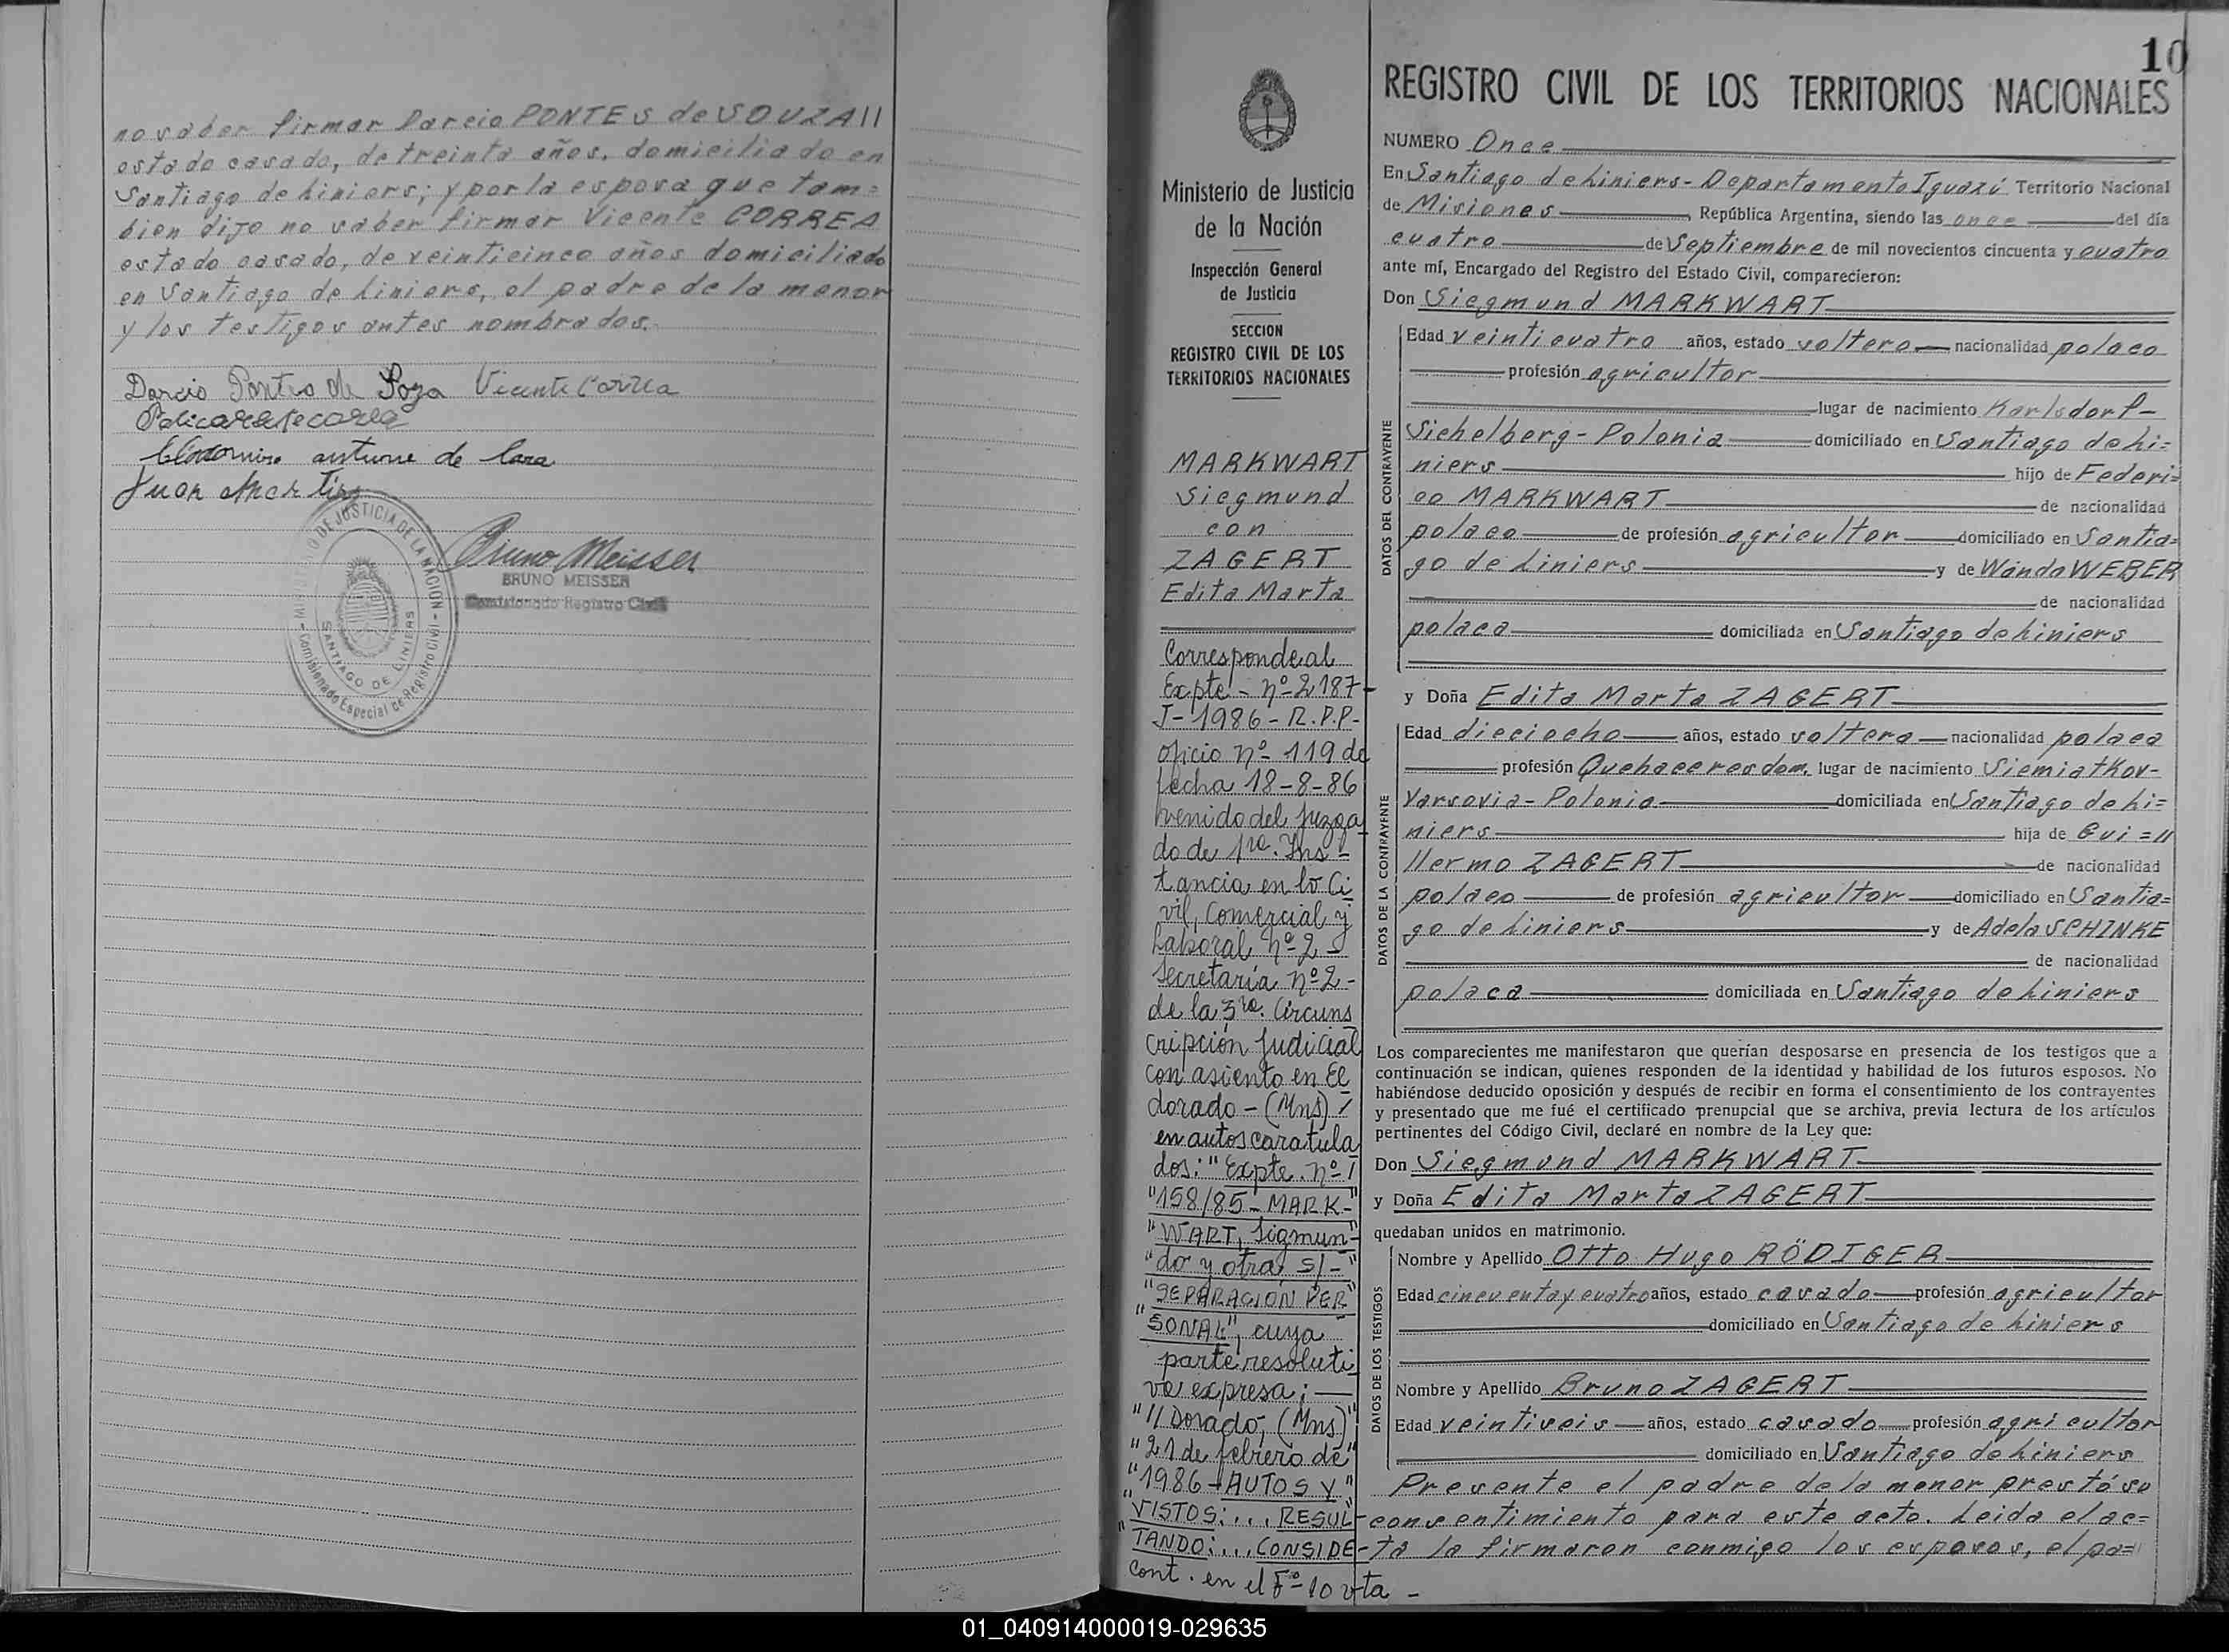 no saber firmar Darcio PONTES de SOUZA//
estado casado, de treinta años, domiciliado en
Santiago de Liniers; y por la esposa que tam=
bien dijo no saber firmar Vicente CORREA
estado casado, de veinticinco años domiciliado
en Santiago de Liniers, el padre de la menor
y los testigos antes nombrados.
Darcio Pontes de Soza Vicente Correa
Clodomiro anture de Lara
Juan Martins
MINISTERIO DE JUSTICIA DE LA NACION
SANTIAGO DE LINIERS
Comisionado Especial de Registro Civil
Bruno Meisser
BRUNO MEISSER
Comisionado Registro Civil
10
Ministerio de Justicia
de la Nación
Inspección General
de Justicia
SECCION
REGISTRO CIVIL DE LOS
TERRITORIOS NACIONALES
MARKWART
Siegmund
con
ZAGERT
Edita Marta
Corresponde al
Expte - nº 2187-
J-1986-R.P.P-
oficio nº 119 de
fecha 18-8-86
venido del Juzga
do de 1ra. Ins-
tancia en lo Ci
vil, Comercial y
Laboral nº 2-
Secretaría nº 2-
de la 3ra. Circuns
cripción Judicial
con asiento en El
dorado-(Mns)/
en autos caratula
dos: "Expte. nº/
"158/85-MARK-"
"WART, Sigmun-"
"do y otra s/-"
"SEPARACION PER"
"SONAL", cuya
parte resoluti
va expresa:—
"//Dorado, (Mns)"
"21 de febrero de"
"1986-AUTOS Y"
"VISTOS:... RESUL-
"TANDO:... CONSIDE-
Cont. en el Fº 10 vta-
REGISTRO CIVIL DE LOS TERRITORIOS NACIONALES
NUMERO Once
En Santiago de Liniers-Departamento Iguazú Territorio Nacional
de Misiones, República Argentina, siendo las once del día
cuatro de Septiembre de mil novecientos cincuenta y cuatro
ante mí, Encargado del Registro del Estado Civil, comparecieron:
Don Siegmund MARKWART
DATOS DEL CONTRAYENTE
Edad veinticuatro años, estado soltero nacionalidad polaco
profesión agricultor
lugar de nacimiento Karlsdorf-
Sichelberg-Polonia domiciliado en Santiago de Li=
niers hijo de Federi=
co MARKWART de nacionalidad
polaco de profesión agricultor domiciliado en Santia=
go de Liniers y de Wanda WEBER
de nacionalidad
polaca domiciliada en Santiago de Liniers
y Doña Edita Marta ZAGERT
DATOS DE LA CONTRAYENTE
Edad dieciocho años, estado soltera nacionalidad polaca
profesión Quehaceres dom. lugar de nacimiento Siemiatkov-
Varsovia-Polonia domiciliada en Santiago de Li=
niers hija de Gui=//
llermo ZAGERT de nacionalidad
polaco de profesión agricultor domiciliado en Santia=
go de Liniers y de Adela SCHINKE
de nacionalidad
polaca domiciliada en Santiago de Liniers
Los comparecientes me manifestaron que querían desposarse en presencia de los testigos que a
continuación se indican, quienes responden de la identidad y habilidad de los futuros esposos. No
habiéndose deducido oposición y después de recibir en forma el consentimiento de los contrayentes
y presentado que me fué el certificado prenupcial que se archiva, previa lectura de los artículos
pertinentes del Código Civil, declaré en nombre de la Ley que:
Don Siegmund MARKWART
y Doña Edita Marta ZAGERT
quedaban unidos en matrimonio.
DATOS DE LOS TESTIGOS
Nombre y Apellido Otto Hugo RÖDIGER
Edad cincuenta y cuatro años, estado casado profesión agricultor
domiciliado en Santiago de Liniers
Nombre y Apellido Bruno ZAGERT
Edad veintiseis años, estado casado profesión agricultor
domiciliado en Santiago de Liniers
Presente el padre de la menor prestó su
consentimiento para este acto. Leida el ac=
ta la firmaron conmigo los esposos, el pa=//
01_040914000019-029635